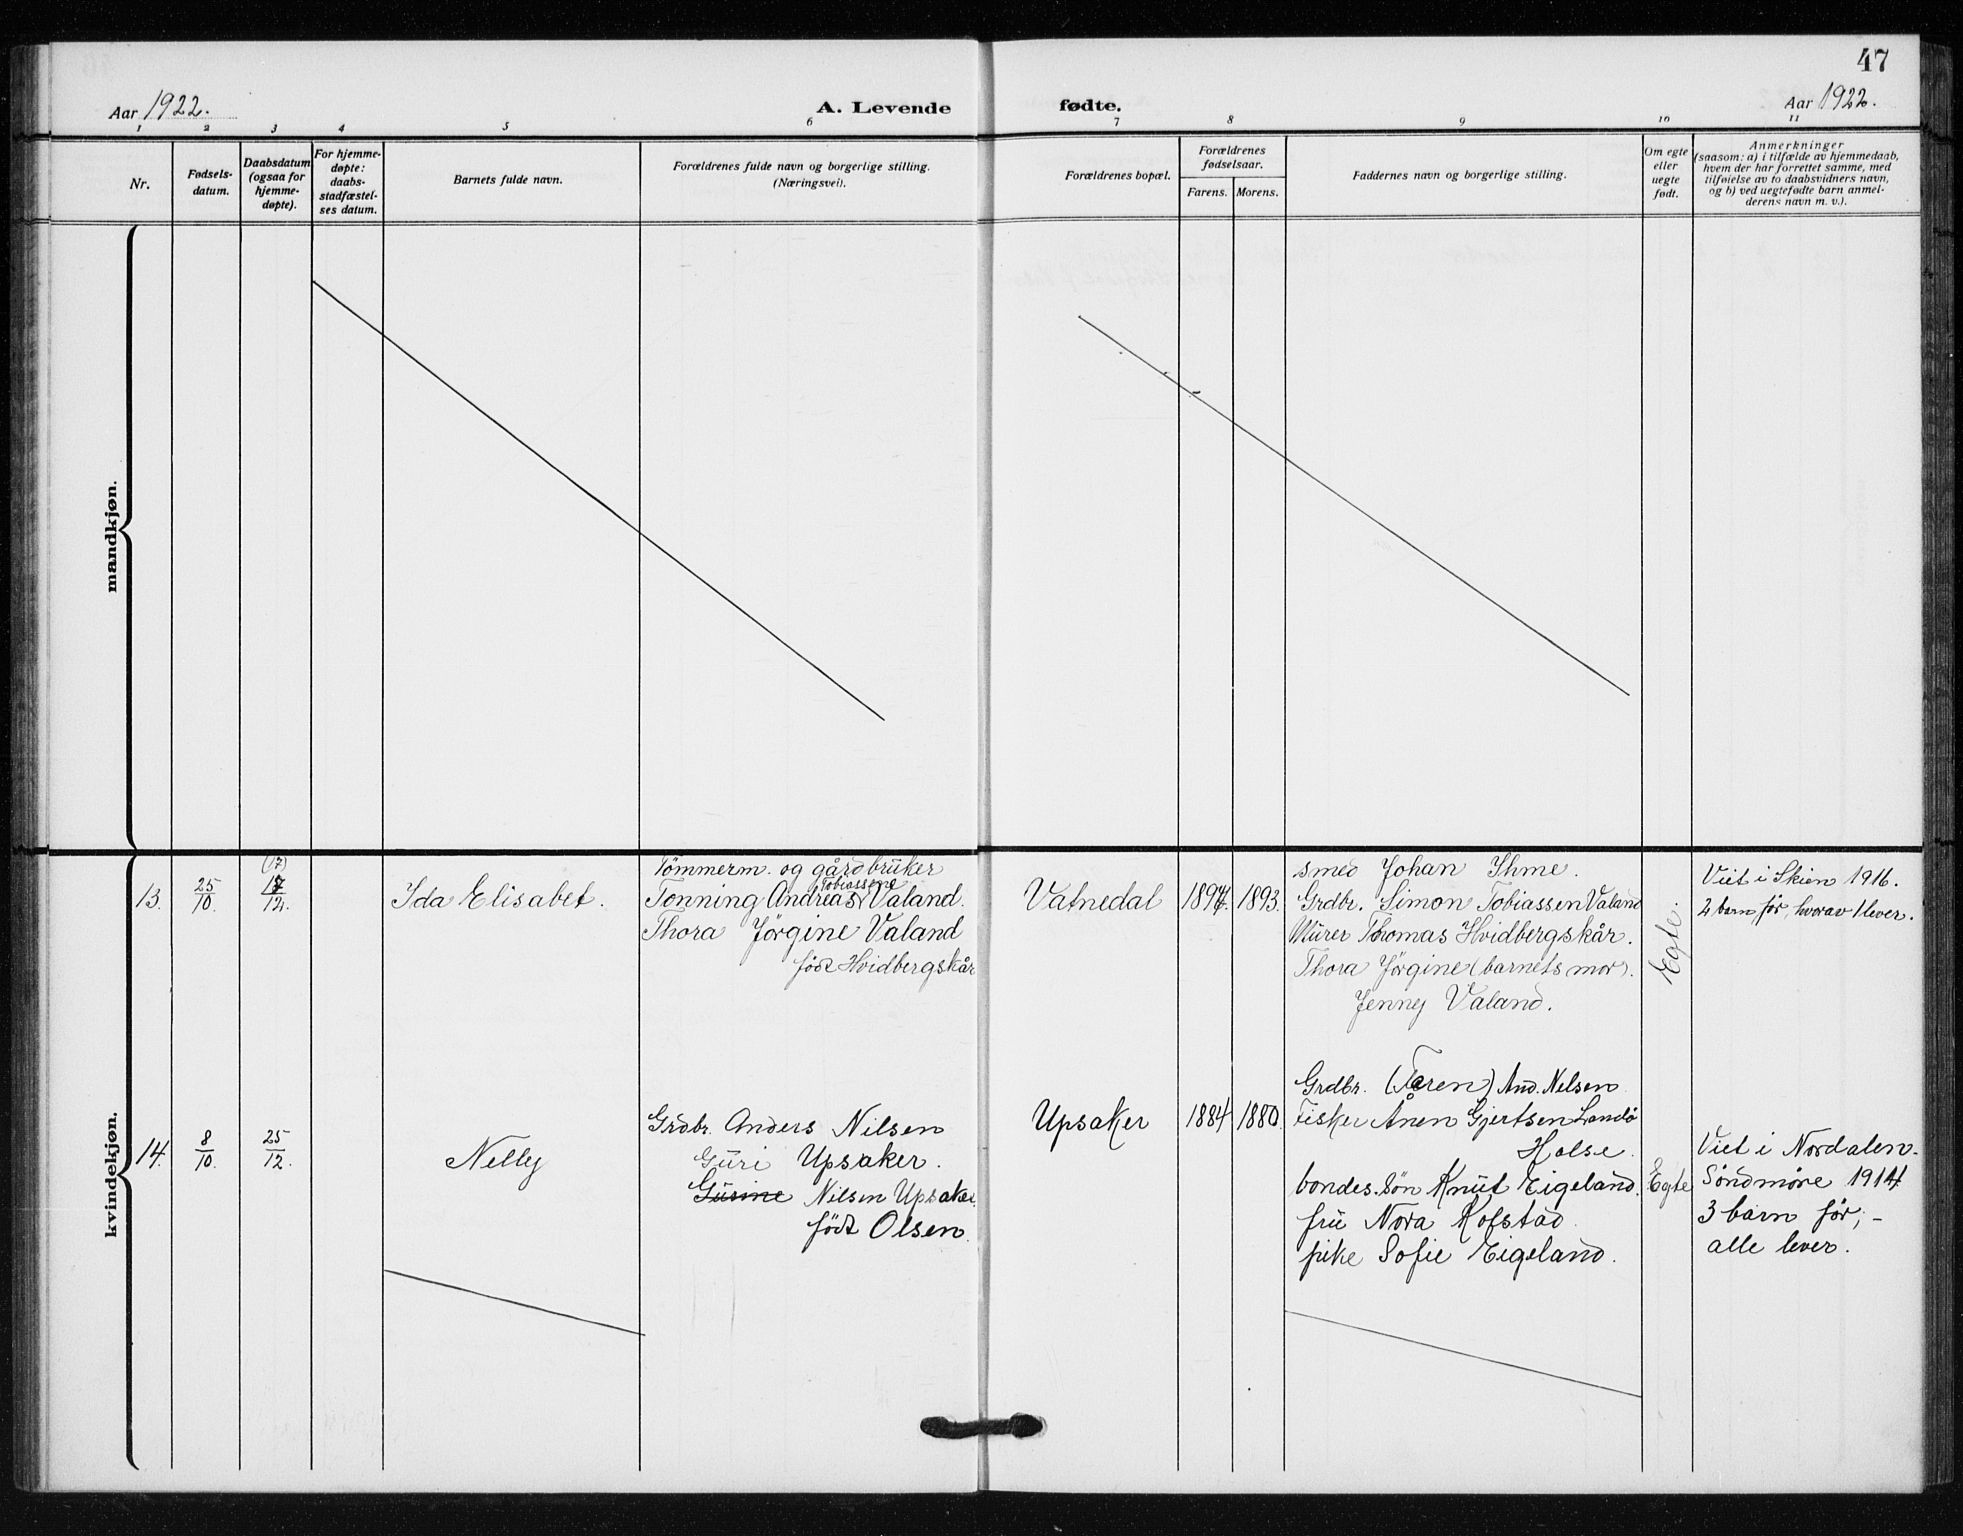 47
Aar 1922.
A. Levende fødte.
Aar 1922.
1 2 3 4 5 6 7 8 9 10 11
Nr.
Fødsels-
datum.
Daabsdatum
(ogsaa for
hjemme-
døpte).
For hjemme-
døpte:
daabs-
stadfæstel-
ses datum.
Barnets fulde navn.
Forældrenes fulde navn og borgerlige stilling.
(Næringsvei).
Forældrenes bopæl.
Forældrenes
fødselsaar.
Farens. Morens.
Faddernes navn og borgerlige stilling.
Om egte
eller
uegte
født.
Anmerkninger
(saasom: a) i tilfælde av hjemmedaab,
hvem der har forrettet samme, med
tilføielse av to daabsvidners navn,
og b) ved uegtefødte barn anmel-
derens navn m. v.).
mandkjøn.
kvindekjøn.
13.
25/10.
(17)
17/12.
Ida Elisabet.
Tömmerm. og gårdbruker
Tobiassene
Tonning Andreas Valand.
Thora Jörgine Valand
født Hvidbergskår
Vatnedal
1894.
1893.
smed Johan Ihme.
Grdbr. Simon Tobiassen Valand
Murer Thomas Hvidbergskår.
Thora Jörgine (barnets mor).
Jenny Valand.
Egte.
Viet i Skien 1916.
2 barn før, hvorav 1 lever.
14.
8/10.
25/12.
Nelly
Grdbr. Anders Nilsen
Upsaker.
Guri
Gusine Nilsen Upsaker.
født Olsen.
Upsaker
1884
1880.
Grdbr. (Faren) And. Nelsen
Fisker Ånen Gjertsen Landö
Holse.
bondes. søn Knut Eigeland.
fru Nora Kofstad.
pike Sofie Eigeland.
Egte
Viet i Nordalen.
Søndmøre 1914
3 barn før; –
alle lever.